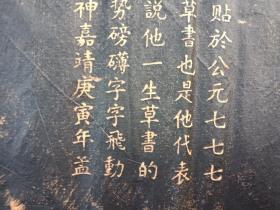 贴於公元七七七
草書也是他代表
説他一生草書的
势磅礴字字飛動
神嘉靖庚寅年孟